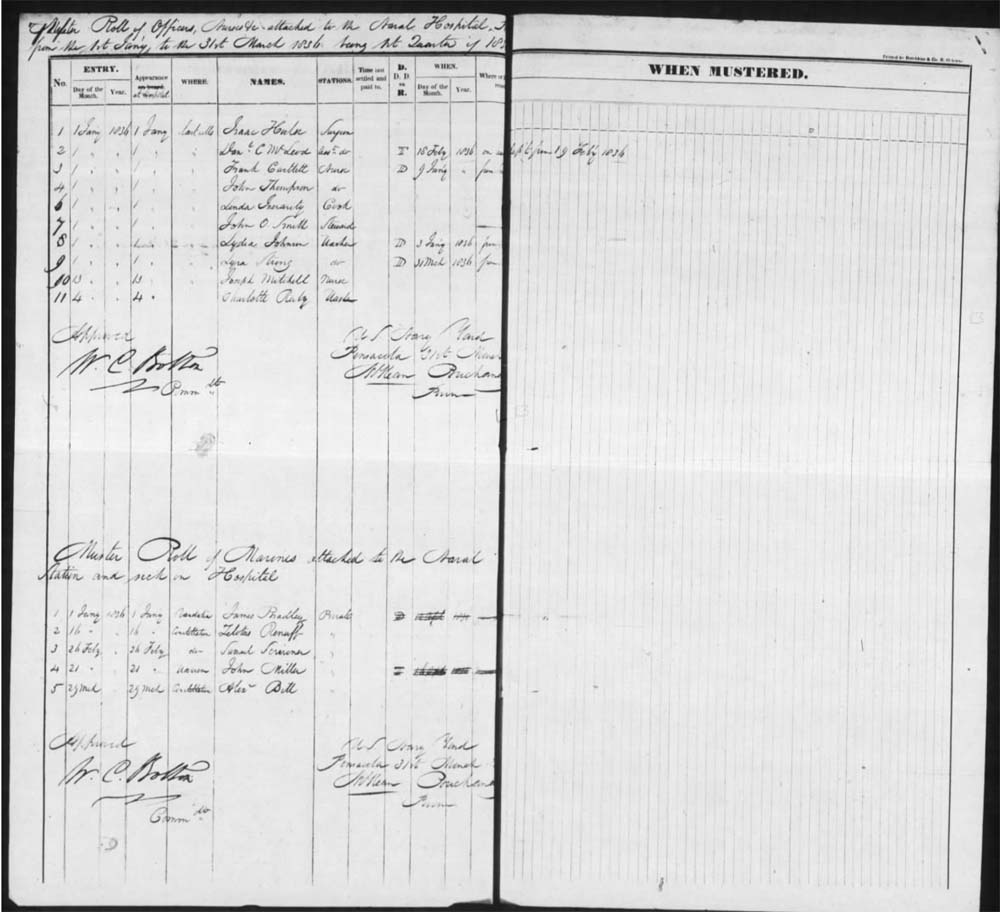 Muster Roll of Officers, Nurses &c attached to the Naval Hospital
from the 1st Jany, to the 31st March 1836 being 1st Quarter of
Printed by
WHEN MUSTERED.
No. ENTRY. Day of the Month. Year. Appearance on board at Hospital WHERE. NAMES. STATIONS. Time not settled and paid to. D. D. D. or R. WHEN. Day of the Month. Year. Where or
1 1 Jany 1836 1 Jany Isaac Hulse Surgeon
2 " " 1 " C McLeod Asst do 18 Feby 1836 from 19 Feby 1836
3 " " 1 " Frank Cartlett Nurse D 9 Jany " from
4 " " 1 " John Thompson do
6 " " 1 " Linda Inerarity Cook
7 " " 1 " John O. Smith Steward
8 " " 1 " Lydia Johnson Washer D 3 Jany 1836 from
9 " " 1 " Strong do D 31 Mch 1836 from
10 13 " 13 " Joseph Mitchell Nurse
11 4 " 4 " Charlotte Ruby Washer
Approved
W. C. Bolton
Commdt
U S Navy Yard
Pensacola 31st March
McKean Buchanan
Purser
Muster Roll of Marines attached to the Naval
Station and sick in Hospital
1 1 Jany 1836 1 Jany Vandalia James Bradley Private D
2 16 " " 16 " Constitution Renuff "
3 26 Feby " 26 Feby do Samuel "
4 21 " " 21 " John Miller "
5 29 Mch " 29 Mch Constitution Alexr Bell "
Approved
W. C. Bolton
Commdt
U S Navy Yard
Pensacola 31st March
McKean Buchanan
Purser